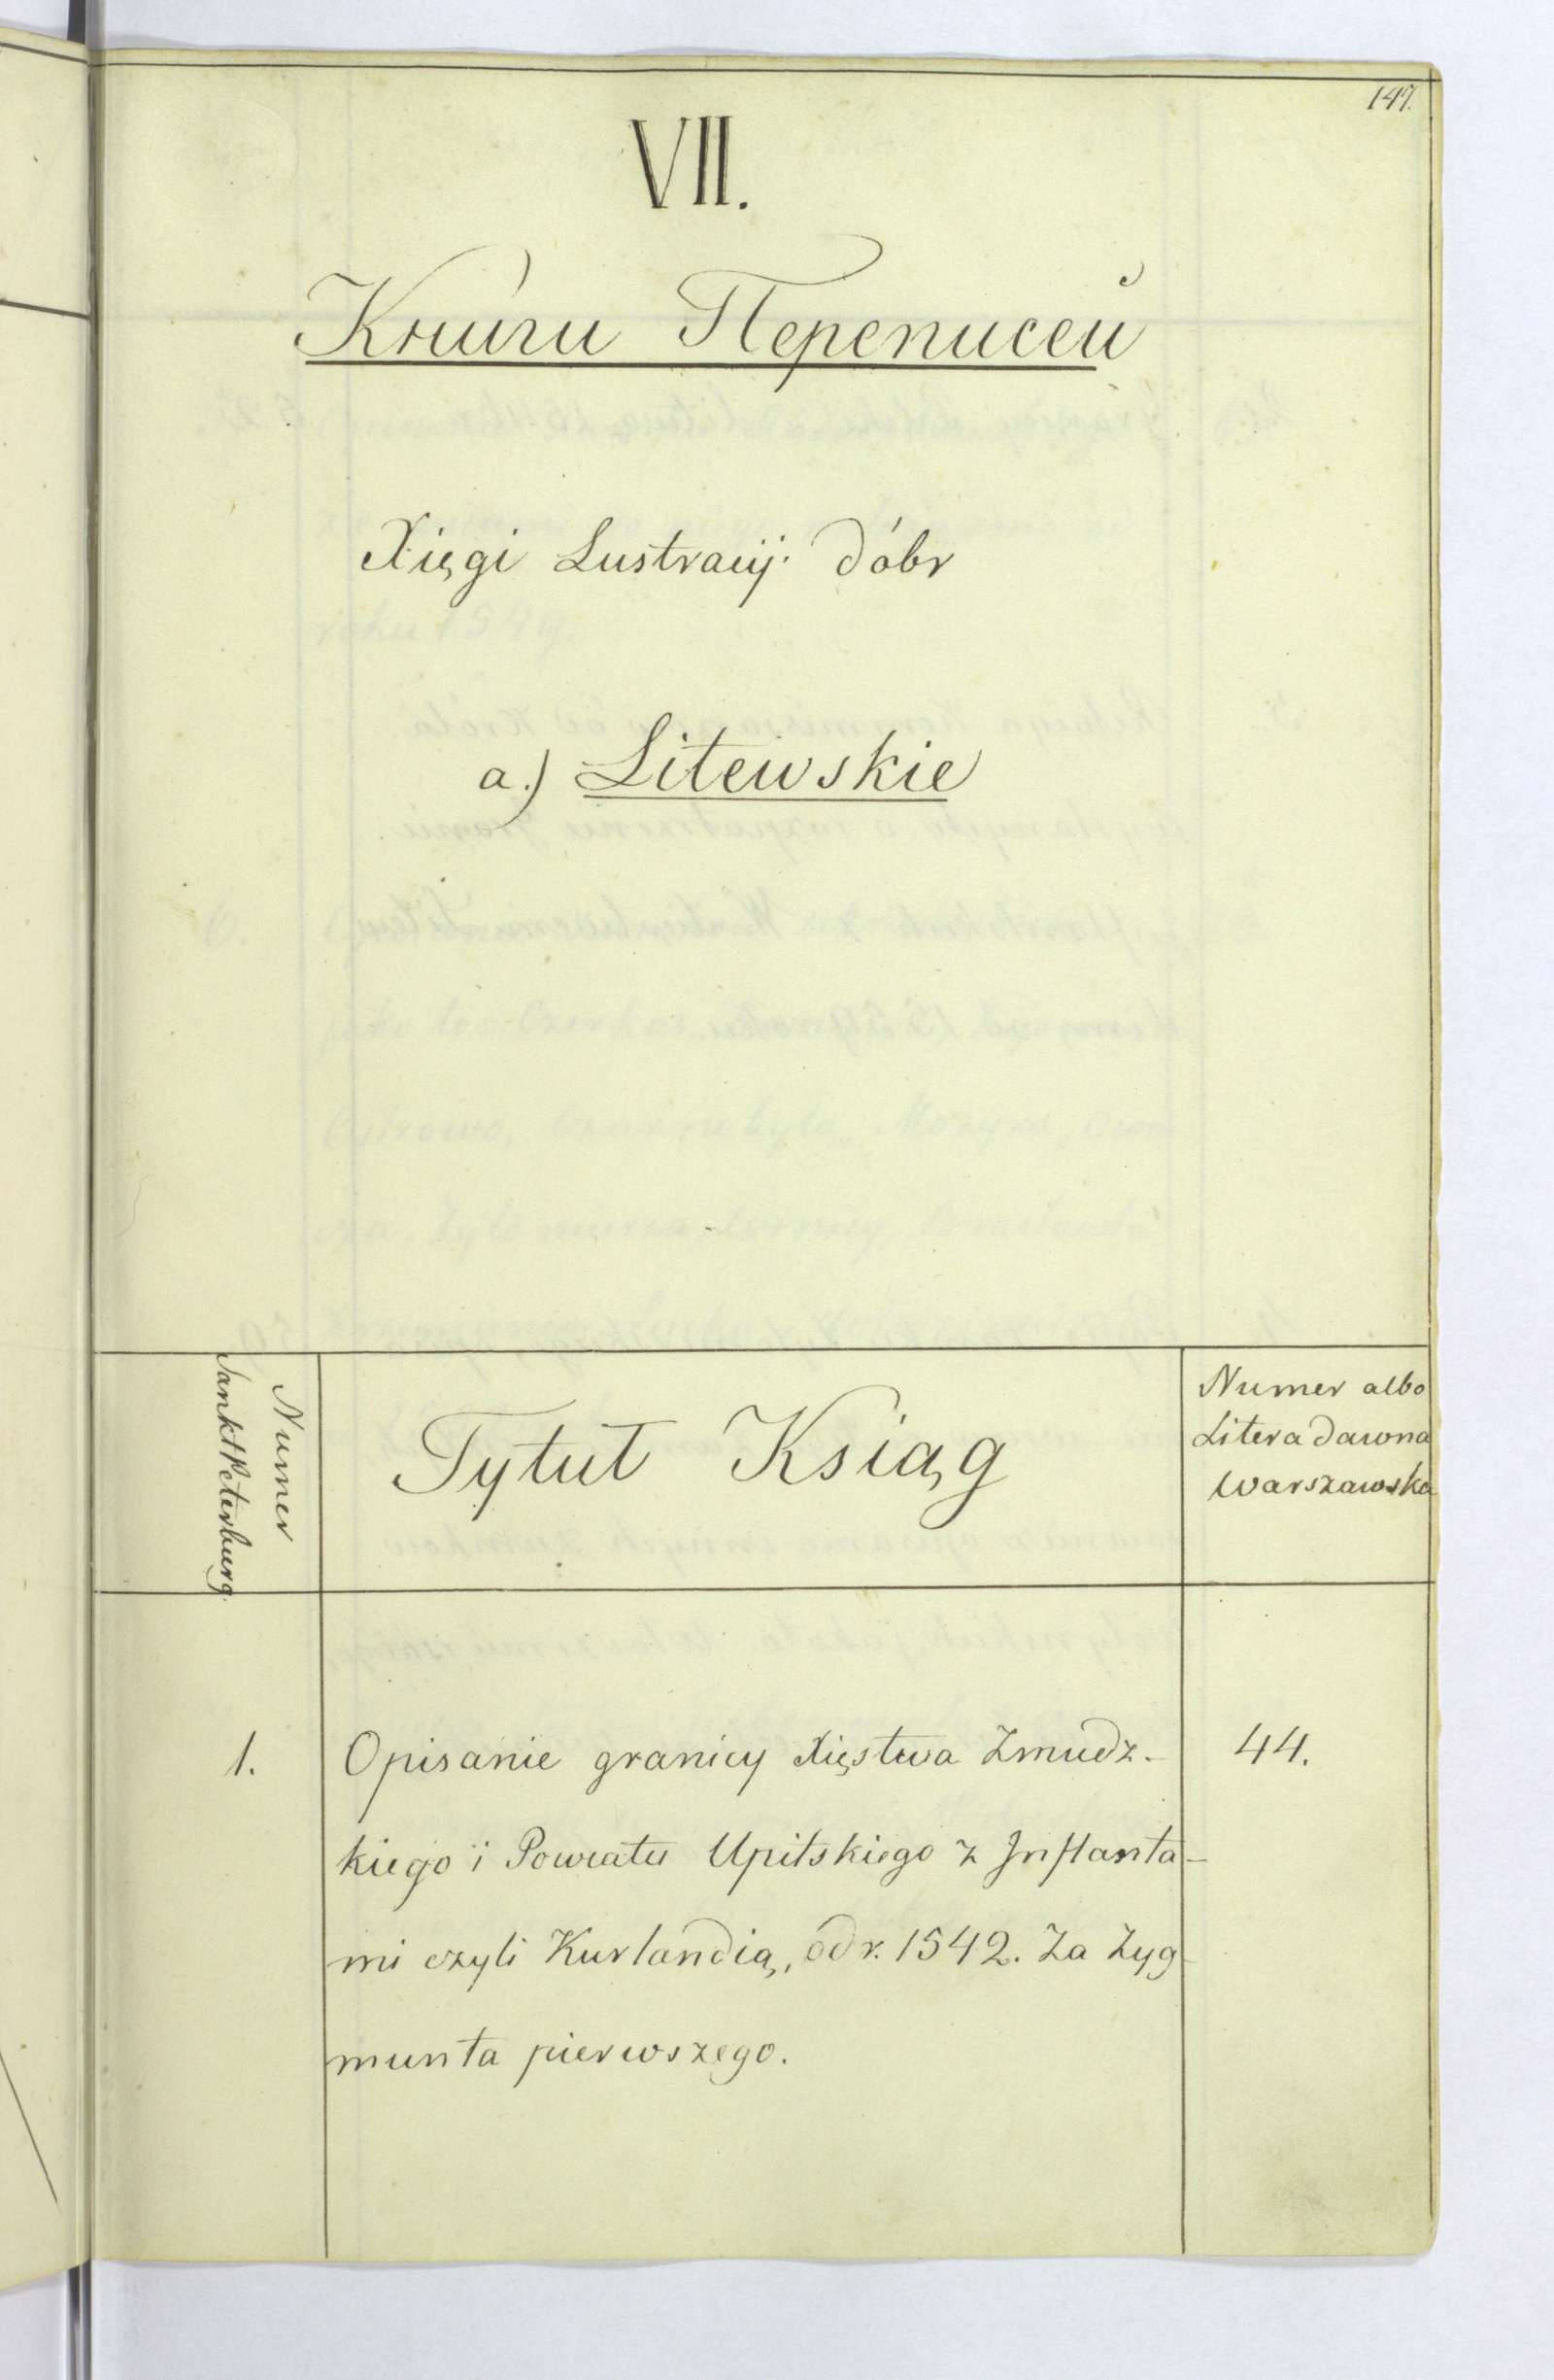 147.
VII.
Книги Переписей
Xięgi Lustracij dóbr
a.) Litewskie
Numer
Sankt Peterburg.
Tytuł Ksiąg
Numer albo
Litera dawna
Warszawska
1.
Opisanie granicy Xięstwa Zmudz-
44.
kiego i Powiatu Upitskiego z Inflanta-
mi czyli Kurlandią, od r. 1542. Za Zyg-
munta pierwszego.